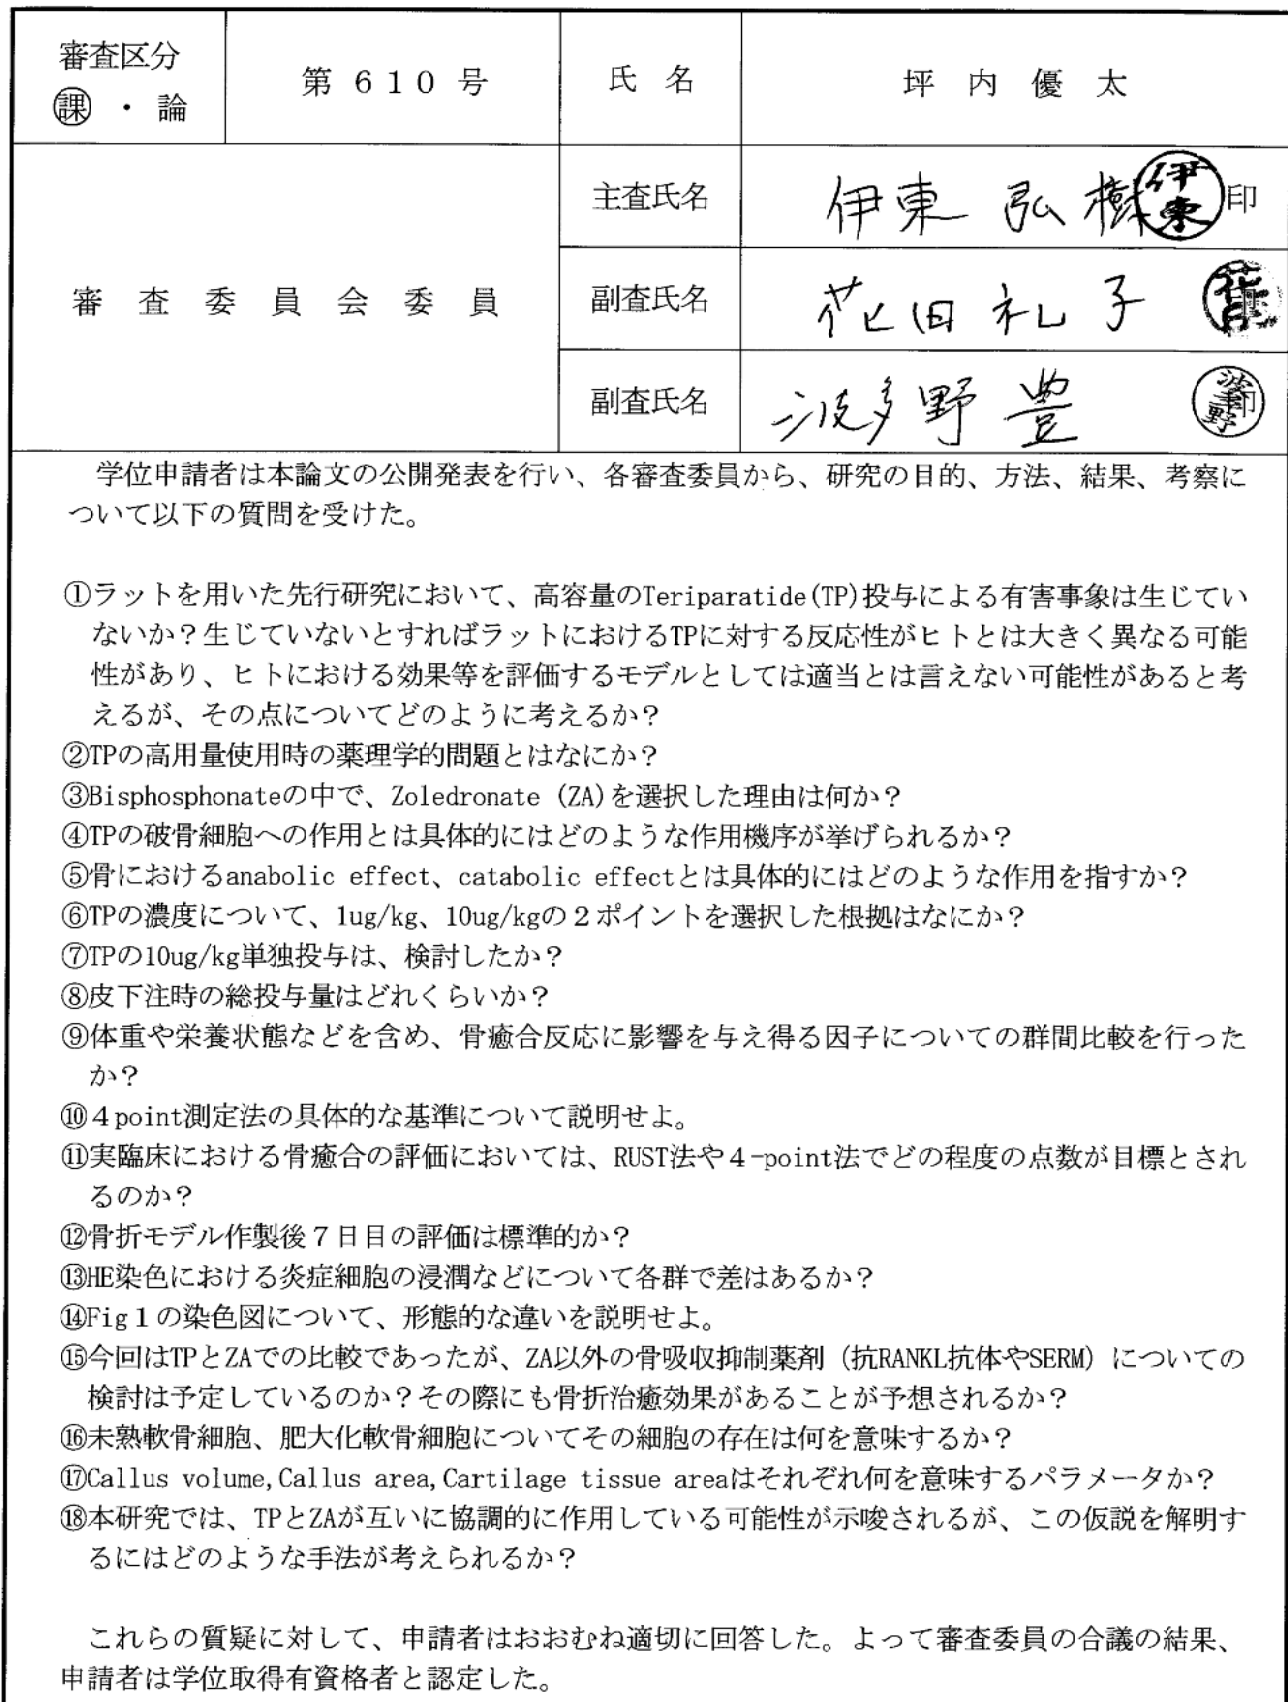 審査区分
課・論
第610号
氏名
坪内優太
審査委員会委員
主査氏名
伊東 弘樹 伊東 印
副査氏名
花田礼子
副査氏名
波多野 豊
学位申請者は本論文の公開発表を行い、各審査委員から、研究の目的、方法、結果、考察に
ついて以下の質問を受けた。
①ラットを用いた先行研究において、高容量のTeriparatide(TP)投与による有害事象は生じてい
ないか？生じていないとすればラットにおけるTPに対する反応性がヒトとは大きく異なる可能
性があり、ヒトにおける効果等を評価するモデルとしては適当とは言えない可能性があると考
えるが、その点についてどのように考えるか？
②TPの高用量使用時の薬理学的問題とはなにか？
③Bisphosphonateの中で、Zoledronate (ZA)を選択した理由は何か？
④TPの破骨細胞への作用とは具体的にはどのような作用機序が挙げられるか？
⑤骨におけるanabolic effect、catabolic effectとは具体的にはどのような作用を指すか？
⑥TPの濃度について、1ug/kg、10ug/kgの２ポイントを選択した根拠はなにか？
⑦TPの10ug/kg単独投与は、検討したか？
⑧皮下注時の総投与量はどれくらいか？
⑨体重や栄養状態などを含め、骨癒合反応に影響を与え得る因子についての群間比較を行った
か？
⑩４point測定法の具体的な基準について説明せよ。
⑪実臨床における骨癒合の評価においては、RUST法や４-point法でどの程度の点数が目標とされ
るのか？
⑫骨折モデル作製後７日目の評価は標準的か？
⑬HE染色における炎症細胞の浸潤などについて各群で差はあるか？
⑭Fig１の染色図について、形態的な違いを説明せよ。
⑮今回はTPとZAでの比較であったが、ZA以外の骨吸収抑制薬剤（抗RANKL抗体やSERM）についての
検討は予定しているのか？その際にも骨折治癒効果があることが予想されるか？
⑯未熟軟骨細胞、肥大化軟骨細胞についてその細胞の存在は何を意味するか？
⑰Callus volume,Callus area,Cartilage tissue areaはそれぞれ何を意味するパラメータか？
⑱本研究では、TPとZAが互いに協調的に作用している可能性が示唆されるが、この仮説を解明す
るにはどのような手法が考えられるか？
これらの質疑に対して、申請者はおおむね適切に回答した。よって審査委員の合議の結果、
申請者は学位取得有資格者と認定した。